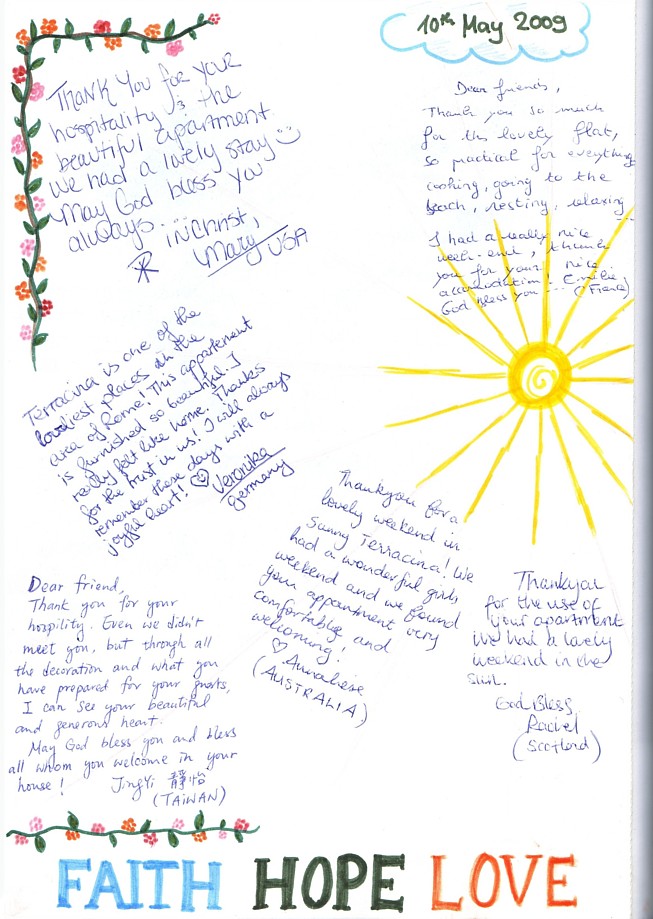 10th May 2009
THANK YOU for your
hospitality & the
beautiful apartment.
We had a lovely stay
May God bless you
always.
IN Christ,
Mary USA
Dear friends,
Thank you so much
for this lovely flat,
so practical for everything
cooking, going to the
beach, resting, relaxing ...
I had a really nice
week-end, thank
you for your nice
accomodation! Emilie
God bless you --- (France)
Terracina is one of the
loveliest places in the
area of Rome! This appartement
is furnished so beautiful. I
really felt like home. Thanks
for the trust in us! I will always
remember these days with a
joyful heart! Veronika
Germany
Thankyou for a
lovely weekend in
Sunny Terracina! We
had a wonderful girls
weekend and we found
your appartment very
comfortable and
welcoming!
Annaliese
(AUSTRALIA)
Dear friend,
Thank you for your
hospility. Even we didn't
meet you, but through all
the decoration and what you
have prepared for your guests,
I can see your beautiful
and generous heart.
May God bless you and bless
all whom you welcome in your
house! JingYi 靜怡
(TAIWAN)
Thankyou
for the use of
your apartment
We had a lovely
weekend in the
sun.
God Bless
Rachel
(Scotland)
FAITH HOPE LOVE